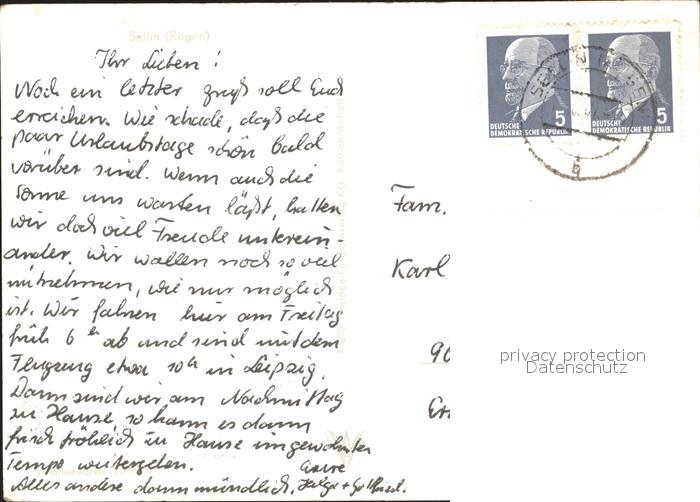 Sellin (Rügen)
Ihr Lieben!
Noch ein letzter Gruß soll Euch
erreichen. Wie schade, daß die
paar Urlaubstage schon bald
vorüber sind. Wenn auch die
Sonne uns warten läßt, hatten
wir doch viel Freude unterein-
ander. Wir wollen noch so viel
mitnehmen, wie nur möglich
ist. Wir fahren hier am Freitag
früh 6 h ab und sind mit dem
Flugzeug etwa 10 h in Leipzig.
Dann sind wir am Nachmittag
zu Hause, so kann es dann
frisch fröhlich zu Hause im gewohnten
Tempo weitergehen.
Alles andere dann mündlich. Eure
Helga +
5
DEUTSCHE
DEMOKRATISCHE REPUBLIK
5
DEUTSCHE
DEMOKRATISCHE REPUBLIK
b
Fam.
Karl
90
privacy protection
Datenschutz